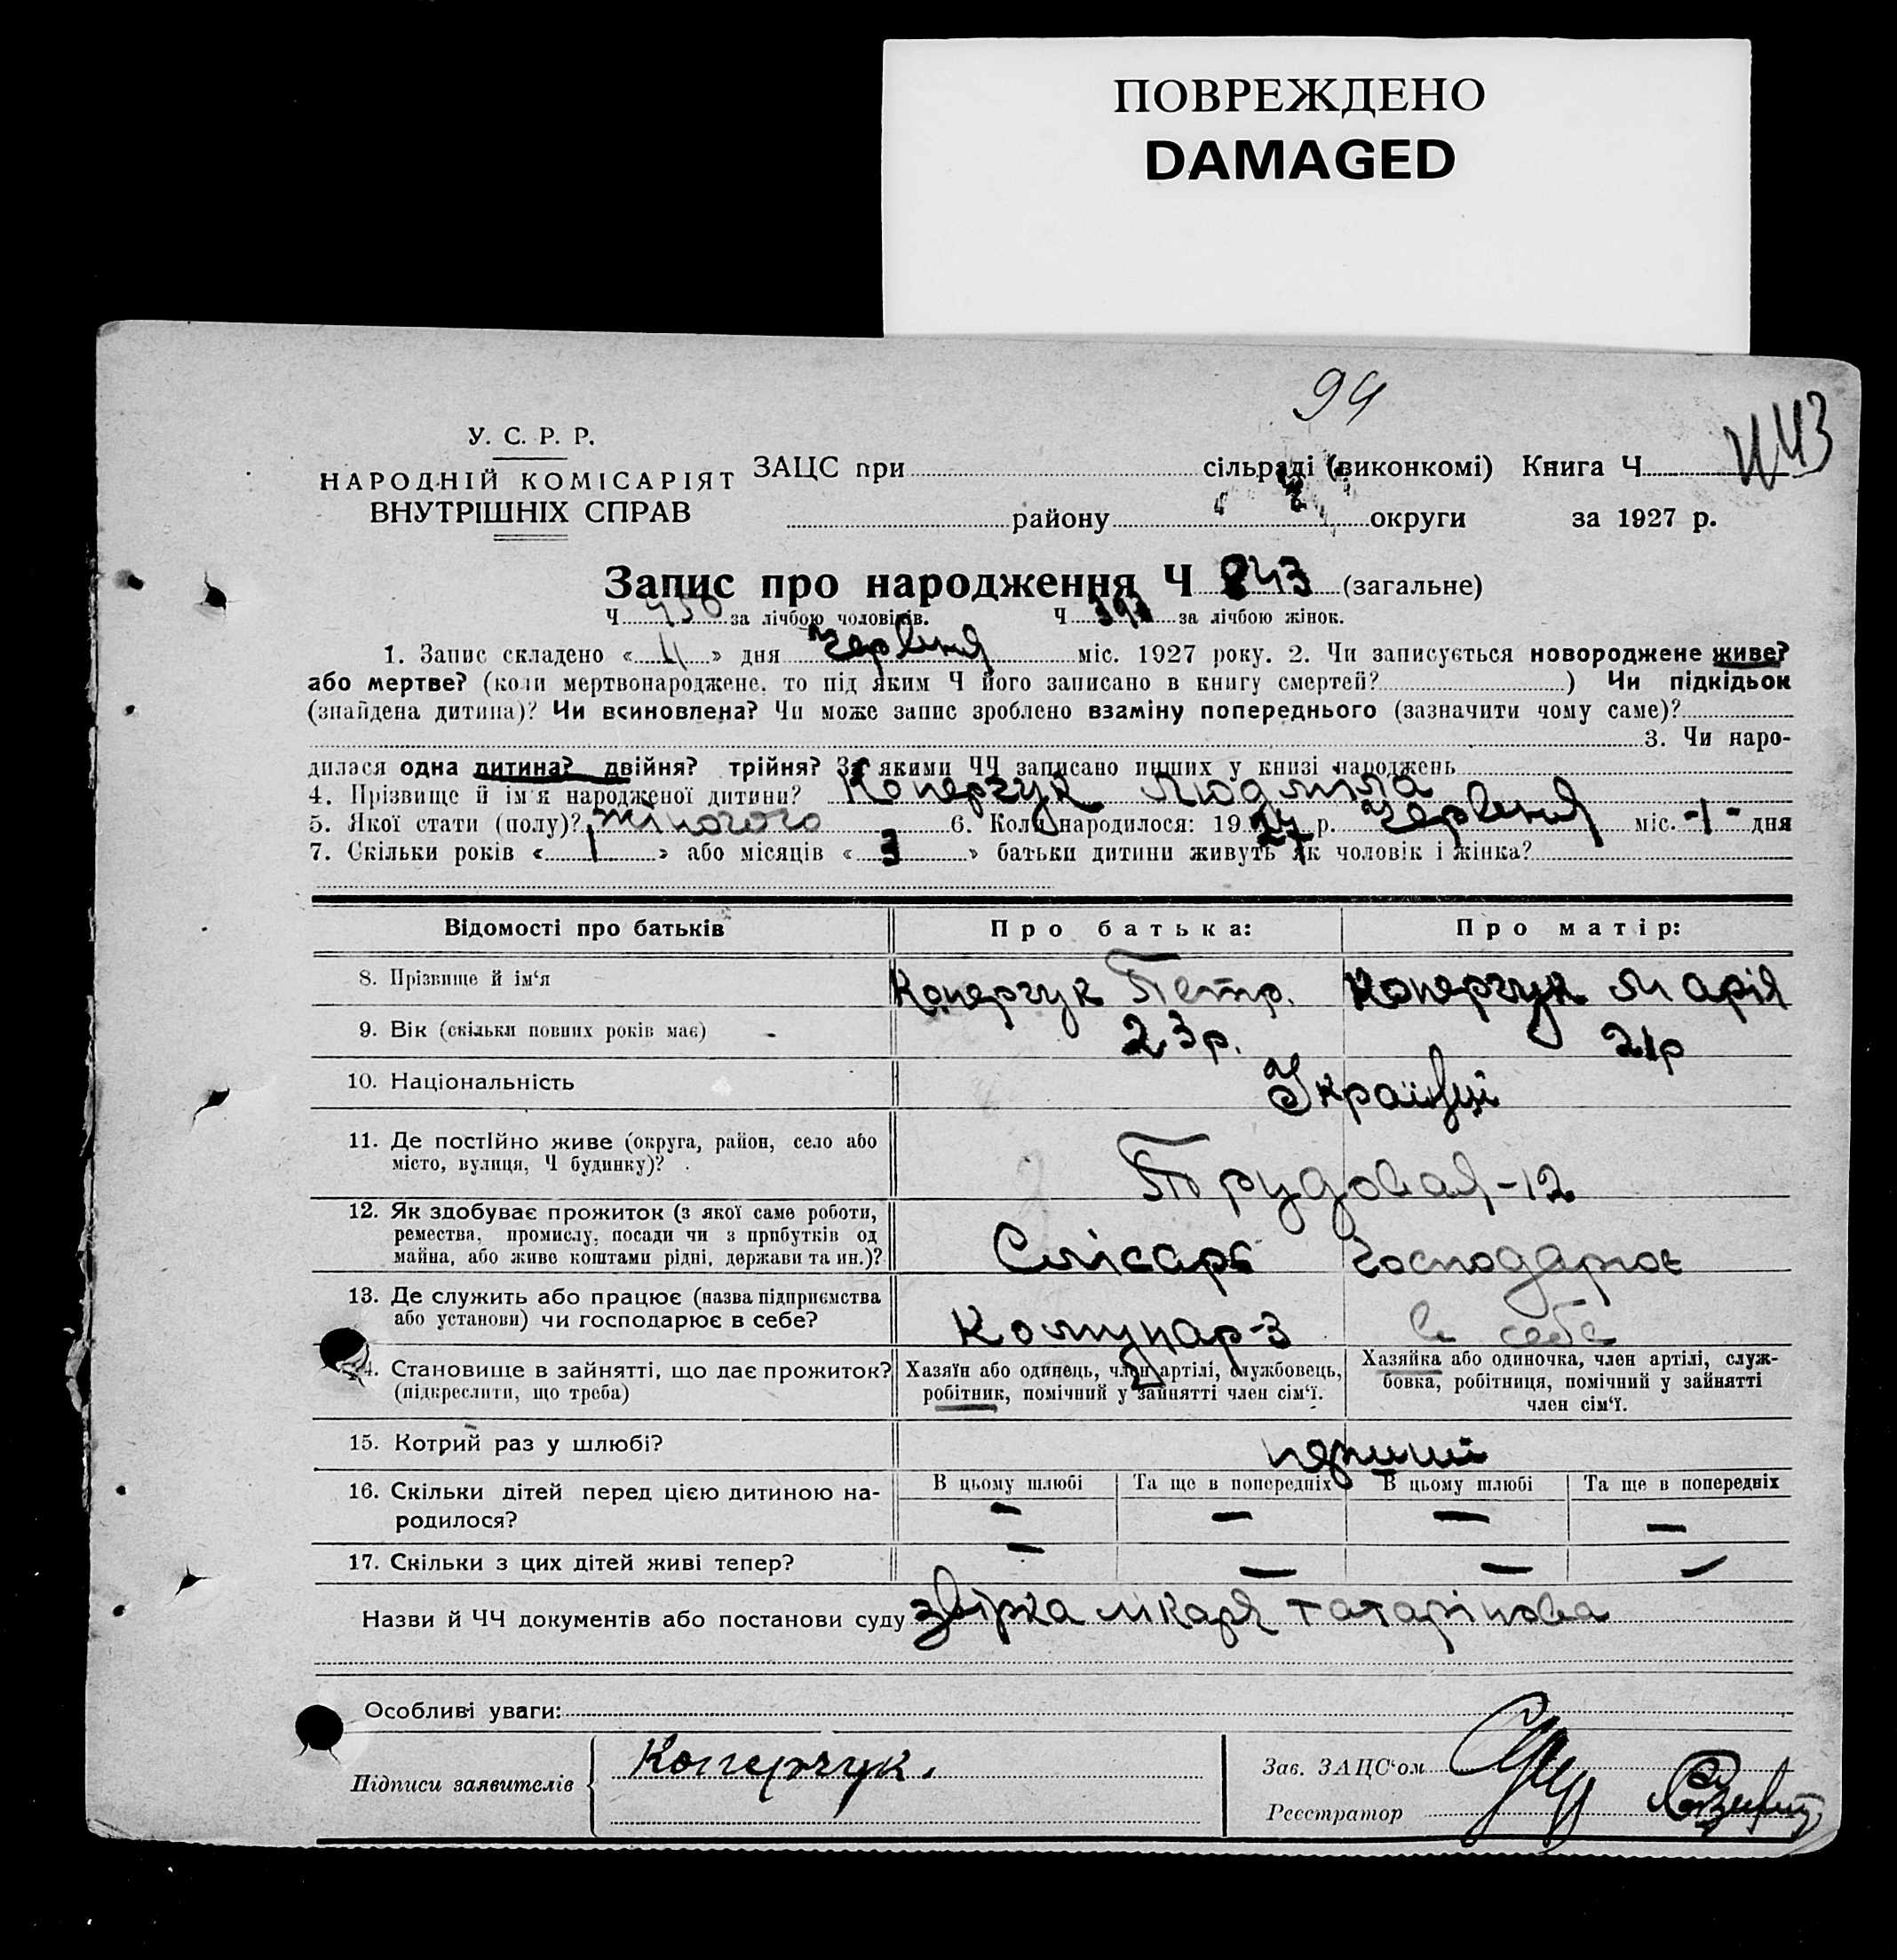 ПОВРЕЖДЕНО
DAMAGED
94
443
У. С. Р. Р.
НАРОДНІЙ КОМІСАРІЯТ
ВНУТРІШНІХ СПРАВ
ЗАЦС при сільраді (виконкомі) Книга Ч
району округи за 1927 р.
Запис про народження Ч 843 (загальне)
Ч 450 за лічбою чоловіків. Ч 393 за лічбою жінок.
1. Запис складено « 11 » дня червня міс. 1927 року. 2. Чи записується новороджене живе?
або мертве? (коли мертвонароджене, то під яким Ч його записано в книгу смертей? ) Чи підкідьок
(знайдена дитина)? Чи всиновлена? Чи може запис зроблено взаміну попереднього (зазначити чому саме)?
3. Чи наро-
дилася одна дитина? двійня? трійня? За якими ЧЧ записано инших у книзі народжень
4. Прізвище й ім'я народженої дитини? Коперчук Людміла
5. Якої стати (полу)? жіночого 6. Коли народилося: 1927 р. червня міс. -1- дня
7. Скільки років « 1 » або місяців « 3 » батьки дитини живуть як чоловік і жінка?
Відомості про батьків Про батька: Про матір:
8. Прізвище й ім'я Коперчук Петр. Коперчук Марія
9. Вік (скільки повних років має) 23р. 21р
10. Національність Українці
11. Де постійно живе (округа, район, село або
місто, вулиця, Ч будинку)? Трудовая-12
12. Як здобуває прожиток (з якої саме роботи,
ремества, промислу, посади чи з прибутків од
майна, або живе коштами рідні, держави та ин.)? Слісарь Господарює
13. Де служить або працює (назва підприємства
або установи) чи господарює в себе? Комунар-3 в себе
14. Становище в зайнятті, що дає прожиток?
(підкреслити, що треба)
Хазяїн або одинець, член артілі, службовець,
робітник, помічний у зайнятті член сім'ї.
Хазяйка або одиночка, член артілі, служ-
бовка, робітниця, помічний у зайнятті
член сім'ї.
15. Котрий раз у шлюбі? перший
16. Скільки дітей перед цією дитиною на-
родилося?
В цьому шлюбі Та ще в попередніх В цьому шлюбі Та ще в попередніх
— — — —
17. Скільки з цих дітей живі тепер? — — — —
Назви й ЧЧ документів або постанови суду звірка лікаря татарінова
Особливі уваги:
Підписи заявителів Коперчук.
Зав. ЗАЦС'ом
Реєстратор